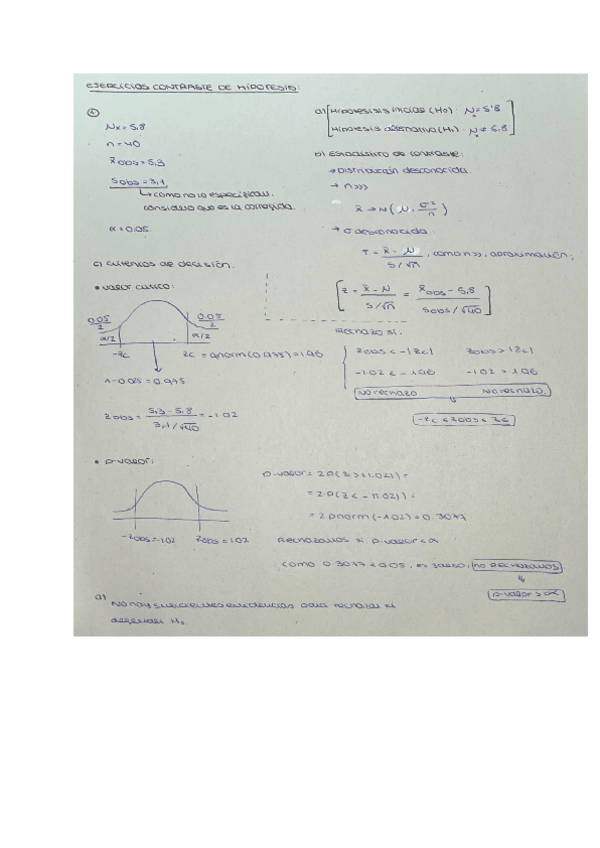 EJERCICIOS CONTRASTE DE HIPOTESIS:
①
Nx = 5,8
n = 40
x̄obs = 5,3
Sobs = 3,1
↳ como no lo especifican,
considero que es la corregida.
α = 0.05
a) Hipotesis inicial (H0): N = 5'8
Hipotesis alternativa (H1): N ≠ 5.8
b) Estadistico de contraste:
→ Distribución desconocida.
→ n>>>
x̄ → N(N, σ²/n)
→ σ desconocida:
T = x̄ - N / S/√n , como n>>, aproximación:
Z = x̄ - N / S/√n = x̄obs - 5,8 / Sobs/√40
c) criterios de decisión.
• valor critico:
0.05/2 0.05/2
α/2 α/2
-Zc Zc = qnorm(0.975) = 1.96
1-0.025 = 0.975
Zobs = 5,3 - 5,8 / 3,1/√40 = -1.02
Rechazo si:
Zobs < -|Zc| Zobs > |Zc|
-1.02 < -1.96 -1.02 > 1.96
No rechazo No rechazo.
-Zc < Zobs < Zc
• p-valor:
p-valor = 2P(Z > |1.02|) =
= 2·P(Z < -|1.02|) =
= 2pnorm(-1.02) = 0.3077
-Zobs = -1.02 Zobs = 1.02
Rechazamos si p-valor < α
como 0.3077 < 0.05, es falso, no rechazamos
p-valor > α
d)
No hay suficientes evidencias para rechazar ni
defender H0.